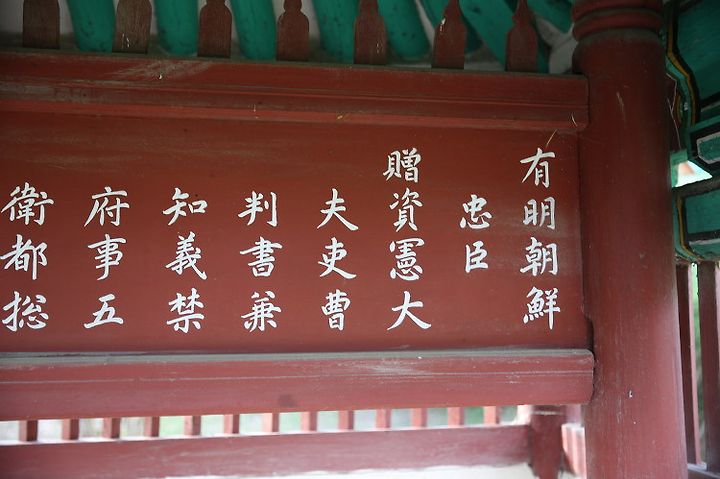 有明朝鮮
忠臣
贈資憲大
夫吏曹
判書兼
知義禁
府事五
衛都総